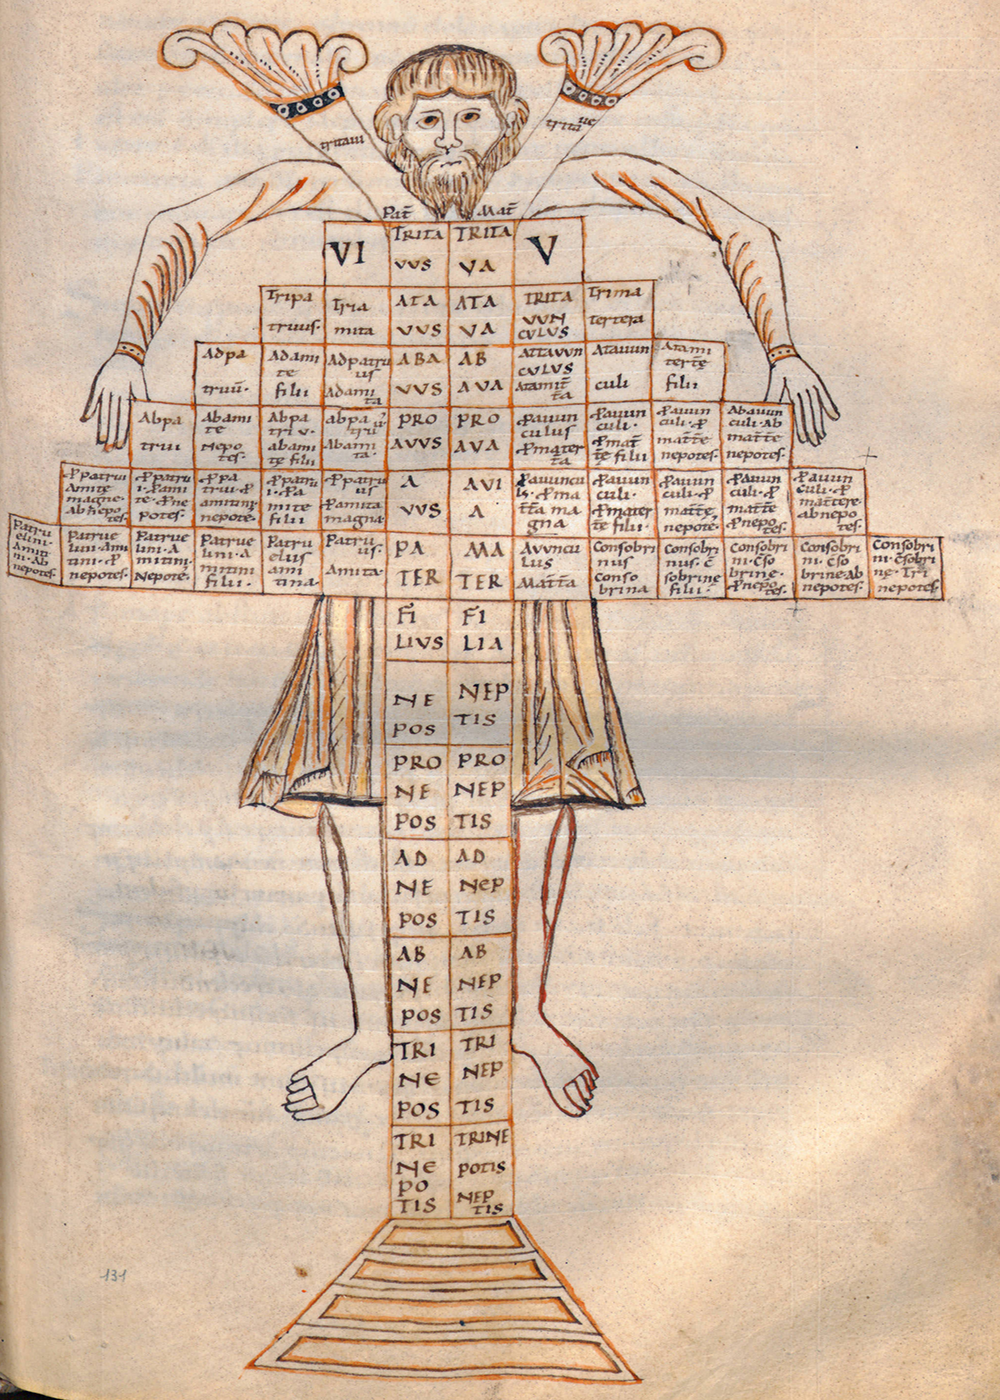 tritaui
tritaue
Pat̄
Mat̄
VI
TRITA
VVS
TRITA
VA
V
Tripa
truus·
Tria
mita
ATA
VVS
ATA
VA
TRITA
VVN
CVLVS
Trima
tertera
Adpa
truū·
Adami
te
filii
Adpatru
us
Adami
ta
ABA
VVS
AB
AVA
ATTAVVN
CVLVS
Atamit̄
t̄a
Atauun
culi
Atami
tertę
filii
Abpa
trui
Abami
te
nepo
tes·
Abpa
tri v·
abami
tę filii
abpa
tru
Abami
ta·
PRO
AVVS
PRO
AVA
P̱auun
culus
P̱mater
t̄a
P̱auun
culi· P̱
mat̄
tę filii
P̱auun
culi· P̱
mat̄te
nepotes·
Abauun
culi· Ab
mat̄te
nepotes·
P̱patrui
Amitę
magne·
Ab n̄epo
tes·
P̱patru
i· P̱ami
te· P̱ne
potes·
P̱pa
trui· P̱
amitini
nepote·
P̱patru
i· P̱a
mite
filii
P̱patru
us
P̱amita
magna·
A
VVS
AVI
A
P̱auuncu
ls· P̱ma
t̄ta ma
gna
P̱auun
culi·
P̱mater
t̄e filii·
P̱auun
culi· P̱
mat̄te·
nepote·
P̱auun
culi· P̱
mat̄te
P̱nepo
tes·
P̱auun
culi· P̱
mat̄tere
ab nepo
tes·
Patru
elini·
Amiti
ni· Ab
nepotes·
Patrue
lini· ami
tini· P̱
nepotes·
Patrue
lini· A
mitini
Nepote·
Patrue
lini· A
mitini
filii·
Patru
elus
ami
tina·
Patru
us·
Amita·
PA
TER
MA
TER
Avvncu
lus
Mat̄t̄a
Consobri
nus
Conso
brina
Consobri
nus· c̄
sobrinę
filii·
Consobri
ni· C̄so
brine·
P̱nepo
tes·
Consobri
ni· C̄sobri
brine· Ab
nepotes·
Consobri
ni· C̄sobri
nę· Tri
nepotes·
FI
LIVS
FI
LIA
NE
POS
NEP
TIS
PRO
NE
POS
PRO
NEP
TIS
AD
NE
POS
AD
NeP
TIS
AB
NE
POS
AB
NEP
TIS
TRI
NE
POS
TRI
NEP
TIS
TRI
NE
PO
TIS
TRINE
POTIS
NEP
TIS
131